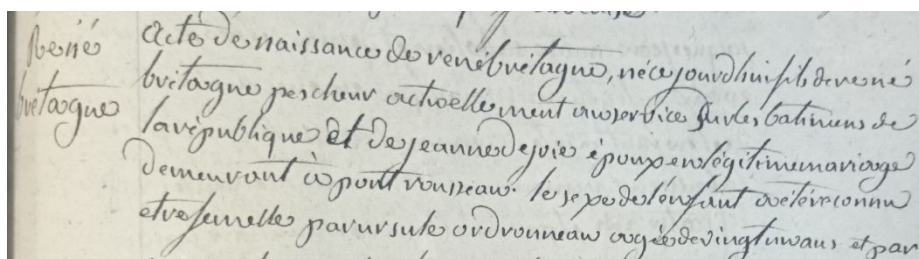 René
bretagne
acte de naissance de rené bretagne, né ce jourdhui fils de rené
bretagne pescheur actuellement au service sur les batimens de
la république et de jeanne dejoie époux en légitime mariage
demeurant à pont rousseau. le sexe de lenfant a été reconnu
etre femelle par ursule ordronneau agée de vingt un ans et par